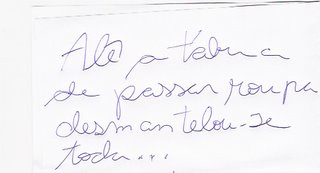 Até a tabua
de passar roupa
desmantelou-se
toda...